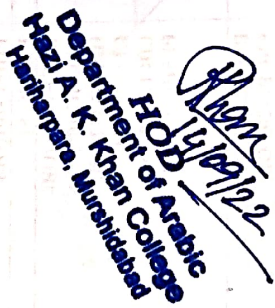 Khan
14/09/22
HOD
Department of Arabic
Hazi A. K. Khan College
Hariharpara, Murshidabad